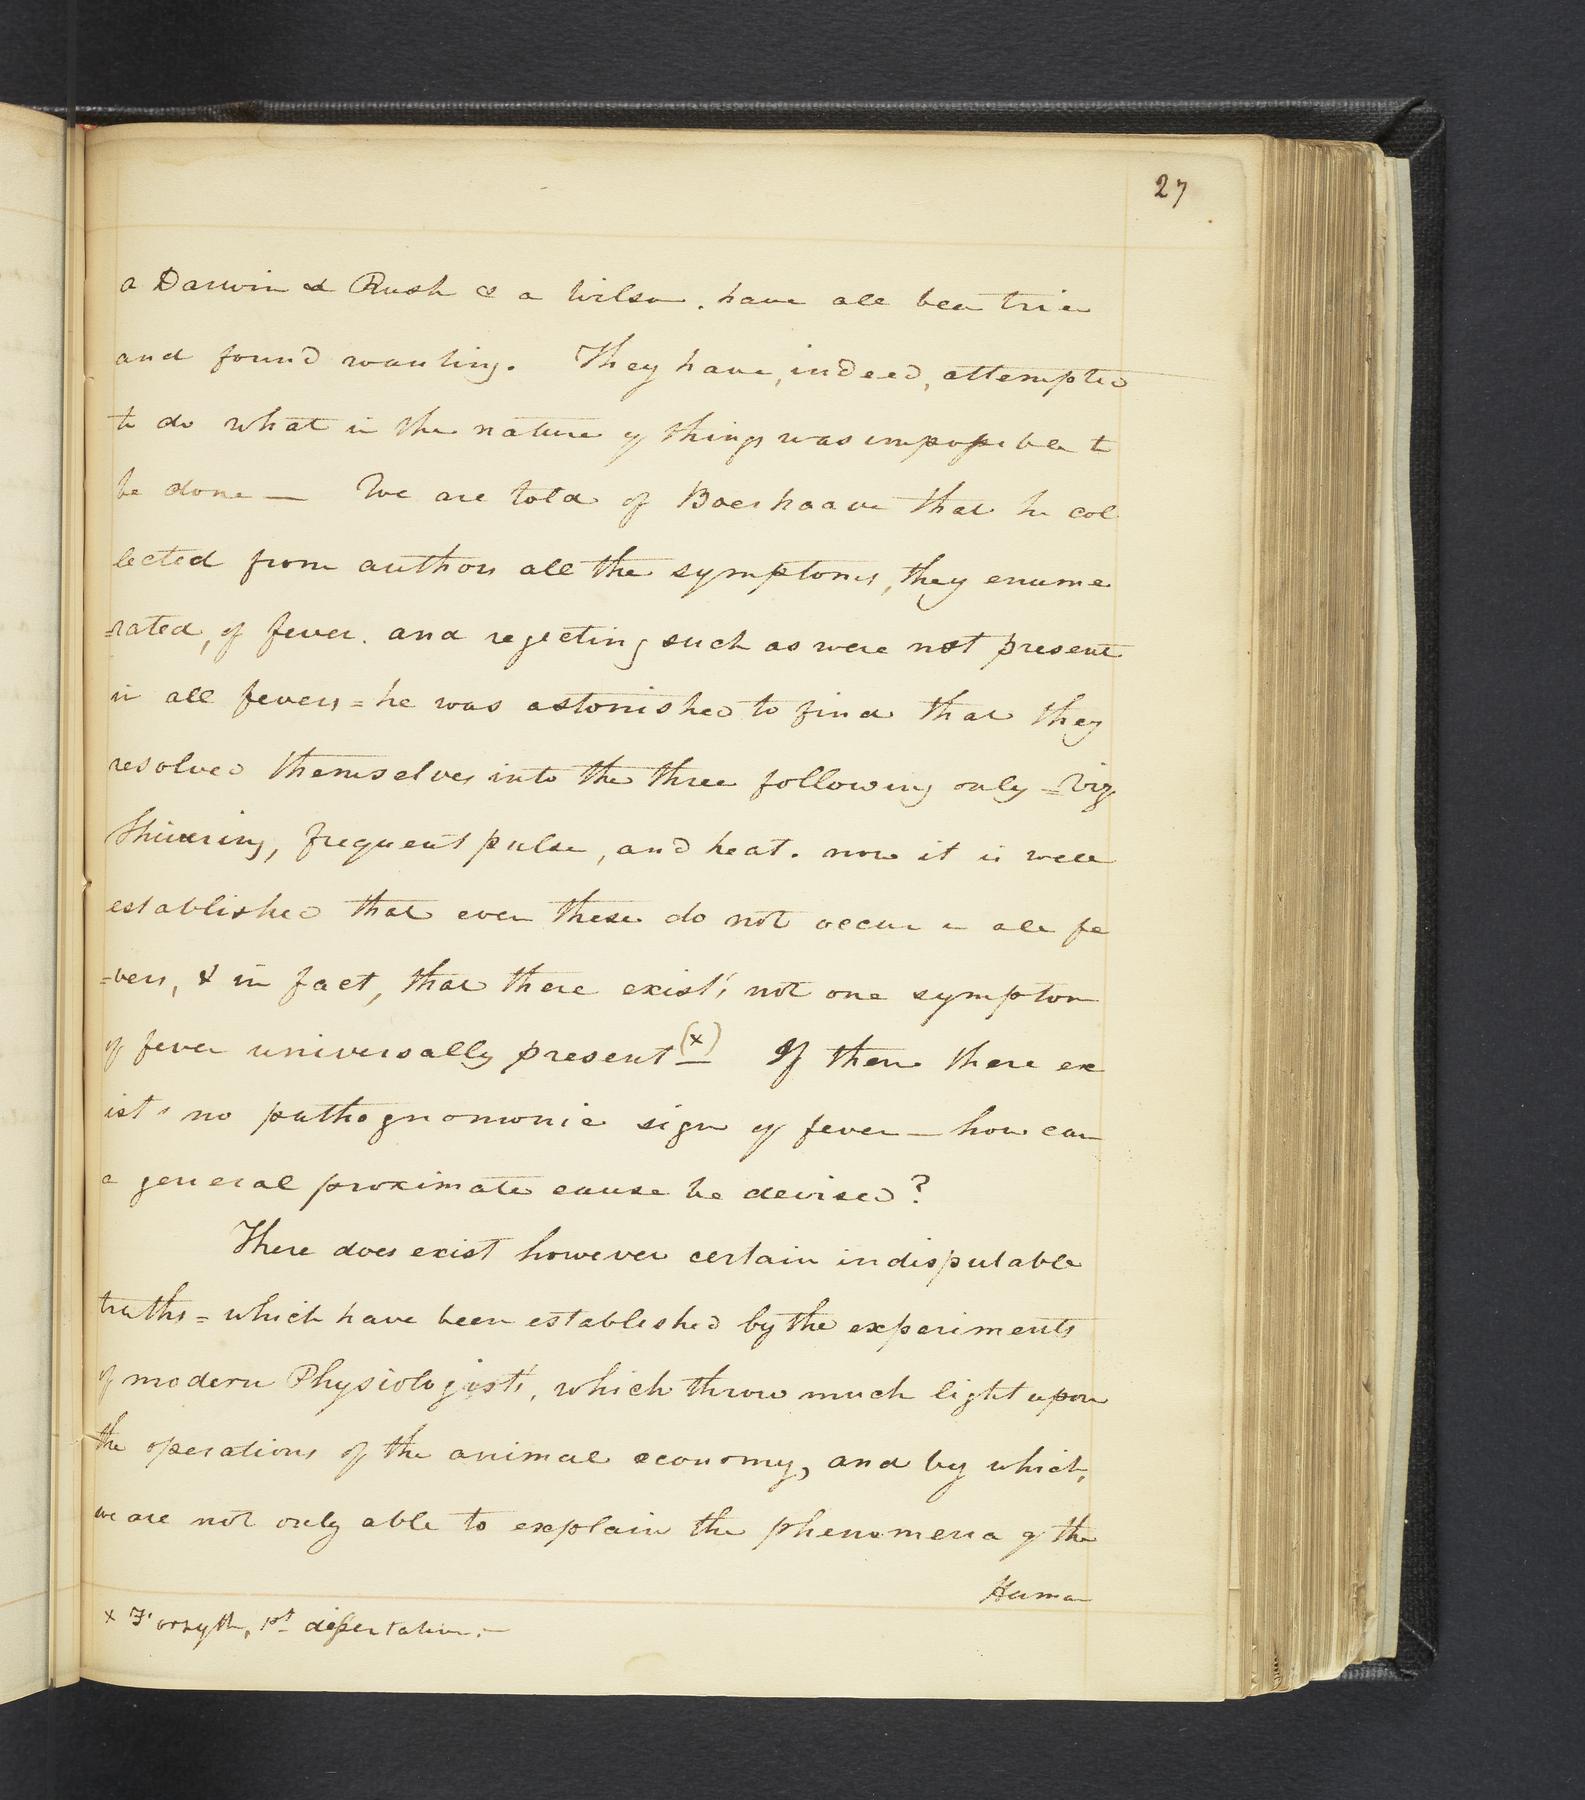 27
a Darwin a Rush & a Wilson. have all been tried
and found wanting. They have, indeed, attempted
to do what in the nature of things was impossible to
be done — We are told of Boerhaave that he col
lected from authors all the symptoms, they enume
=rated, of fever. and rejecting such as were not present
in all fevers = he was astonished to find that they
resolved themselves into the three following only = viz
Shivering, frequent pulse, and heat. now it is well
established that even these do not occur in all fe
=vers, & in fact, that there exists not one symptom
of fever universally present (x) If then there ex
ists no pathognomonic sign of fever — how can
a general proximate cause be devised?
There does exist however certain indisputable
truths = which have been established by the experiments
of modern Physiologists, which throw much light upon
the operations of the animal economy, and by which,
we are not only able to explain the phenomena of the
Human
x Forsyth, 1st dissertation. —